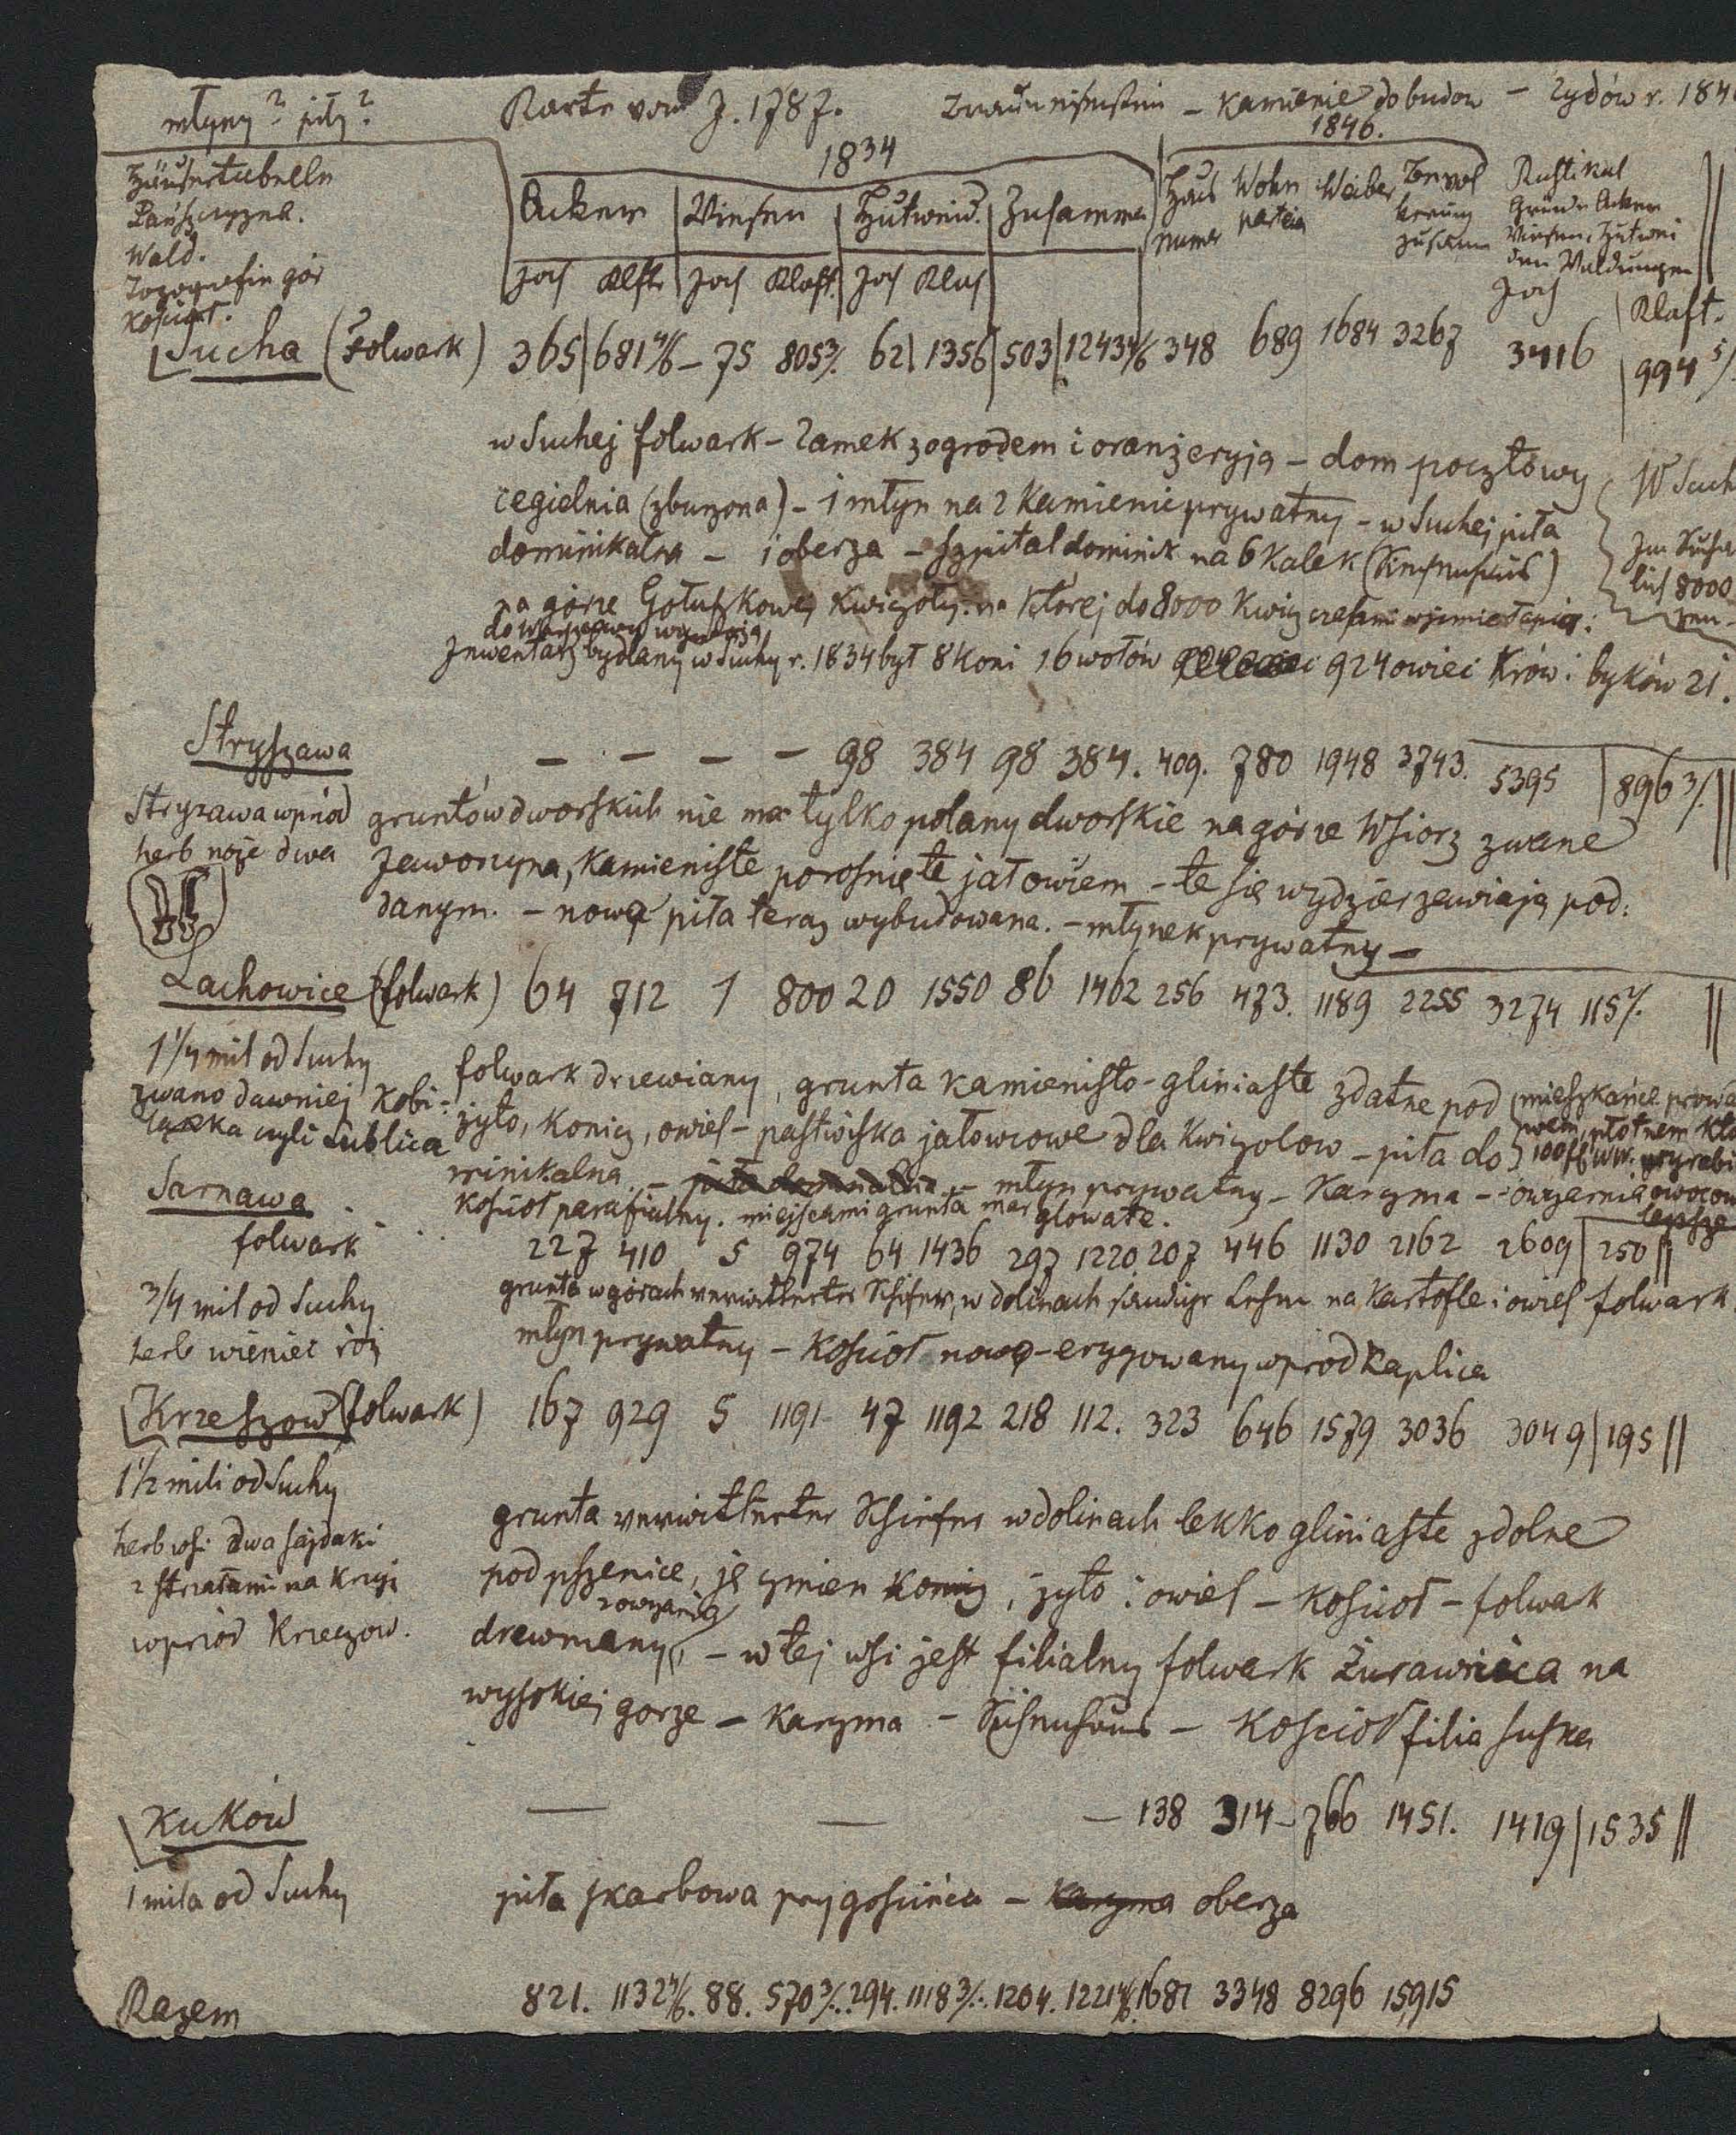 młyny? piły?
Karte vom J. 1787. – Kamienie do budow – Żydów r. 184
Häusertabelle
Pańszczyzna.
Wald.
Topografie gór
Kościoł.
1834
1846.
Acker Wiesen Hutweid. Zusammen
Joch Klftr Joch Klaft. Joch Klaf
Haus numer Wohn parteien Weiber Bevöl kerung zusam
Rustikal Gründe Acker Wiesen, Hutwei den Waldungen
Joch Klaft.
Sucha (Folwark) 365 681 4/6 – 75 805 3/. 62 1356 503 1243 4/6 348 689 1684 3267 3416 994 5/
w Suchej folwark – Zamek z ogrodem i oranżeryją – dom pocztowy
cegielnia (zburzona) – 1 młyn na 2 Kamienie prywatny – w Suchej piła
dominikalna – 1 oberza – szpital dominik na 6 Kalek
na górze Kwiczoły. na Ktorej do 8000 Kwicz
Inwentarz bydlany w Suchy r. 1834 był 8 Koni 16 wołów 924 owiec Krów i byków 21.
W Such
8000
Stryszawa – – – – 98 384 98 384. 409. 780 1948 3743. 5395 896 3/.
Stryzawa wpriod
herb noże dwa
gruntów dworskich nie ma tylko polany dworskie na górze Wsiorz zwane
Jaworzyna, Kamieniste porosnięte jałowcem – te się wydzierzawiają pod:
danym. – nowa piła teraz wybudowana. – młynek prywatny –
Lachowice (folwark) 64 712 1 800 20 1550 86 1462 256 473. 1189 2255 3274 115
1 1/4 mil od Suchy
zwano dawniej Kobi-
czyli Lublica
folwark drzewiany, grunta Kamienisto-gliniaste zdatne pod
żyto, Konicz, owies – pastwiska jałowcowe dla Kwizolow – piła do
minikalna – piła dominalna – młyn prywatny – Karzma – owczarnia
Kosciół parafialny. miejscami grunta mar glowate.
mieszkańce prowa
płotnem
Sarnawa
folwark 227 410 5 974 64 1436 297 1220 207 446 1130 2162 2609 250
3/4 mil od Suchy
herb wieniec róż
grunta w górach verwitterter Schifer, w dolinach Lehm na Kartofle i owies folwark
młyn prywatny – Kościoł nowo-erygowany wprod Kaplica
Krzeszow (folwark) 167 929 5 1191 47 1192 218 112. 323 646 1579 3036 3049 195
1 1/2 mili od Suchy
herb wsi dwa sajdaki
z strzałami na Krzyż
wpriód Krzeczow.
grunta verwitterter Schiefer w dolinach lekko gliniaste zdolne
pod pszenice, jęczmien konicz, żyto i owies – Kosciół – folwark
z owczarnią
drewniany, – w tej wsi jest filialny folwark Żurawnica na
wysokiej gorze – Karzma – – Kosciół filia suska
Kuków — — – 138 314 – 766 1451. 1419 1535
1 mila od Suchy
piła skarbowa przy gościńcu – Karzma oberza
Razem 821. 1132 4/6. 88. 570 3/. 294. 1118 3/. 1204. 1221 4/6. 1681 3348 8296 15,915